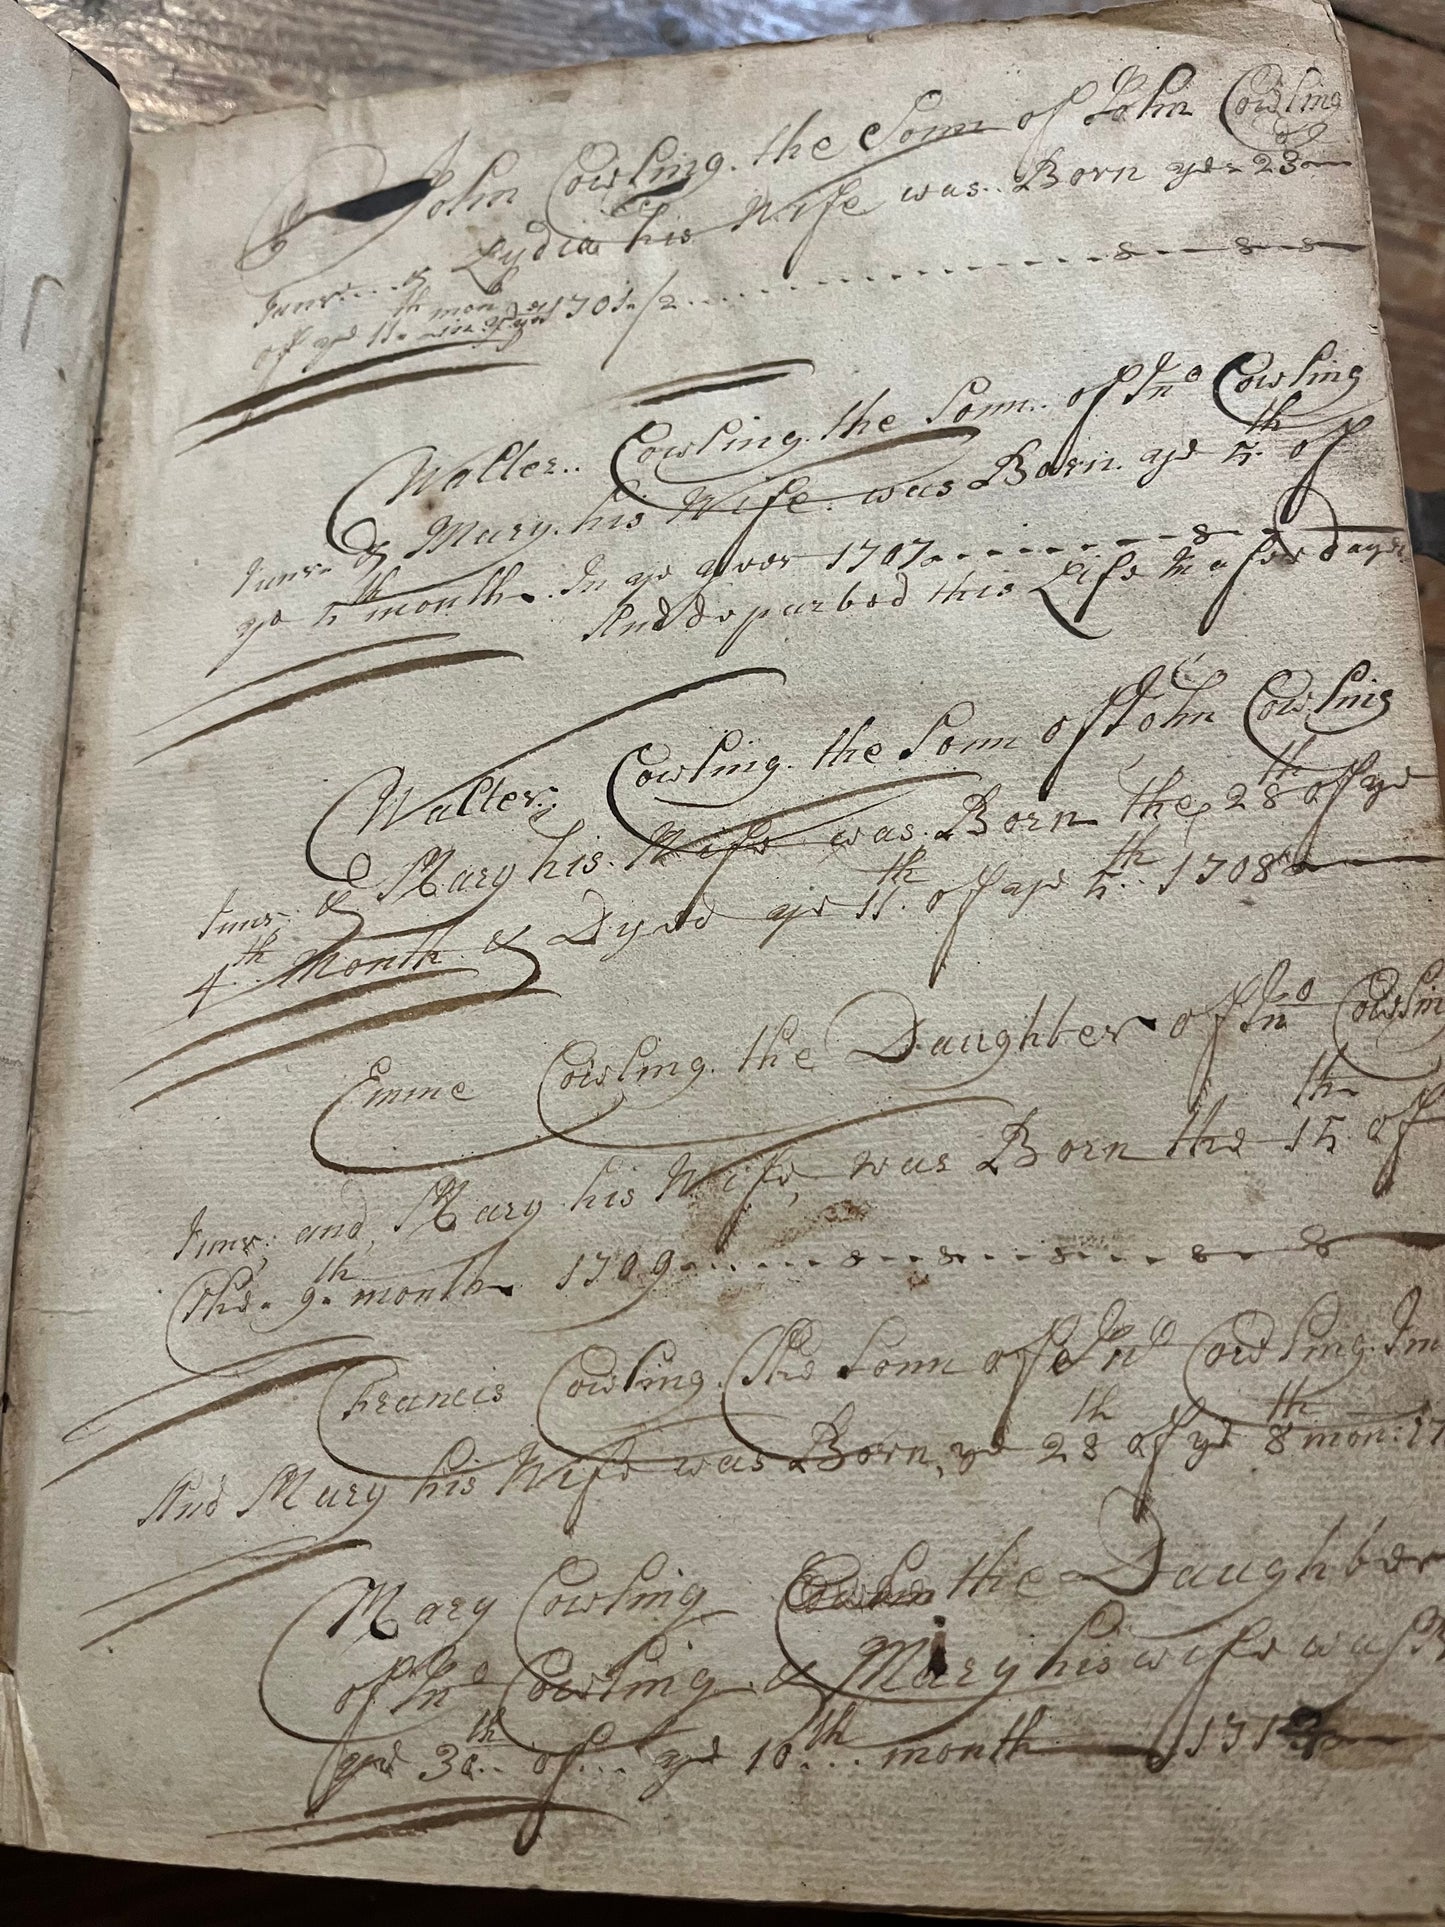 John Cowling. the Sonn of John Cowling
Junr.... & Lydia his Wife was.. Born ye 23
of ye 11th mon in ye yer 1701/2
Walter.. Cowling. the Sonn.. of Jno Cowling
Junr. & Mary. his Wife. was Born. ye 5th of
ye 5th month. In ye yeer 1707
And departed this Life In a few dayes
Walter; Cowling. the Sonn of John Cowling
Junr; & Mary his. Wife was. Born the 28th of ye
4th.. Month & Dyed ye 11th of ye 5th.. 1708
Emme Cowling. the Daughter of Jno Cowling
Junr; and, Mary his Wife, was Born the 15th of
The. 9th month 1709
Francis Cowling. The Sonn of Jno Cowling. Jun
And Mary his Wife was Born, ye 28th of ye 8th mon: 17
Mary Cowling the Daughter
of Jno Cowling & Mary his wife was
ye 30th.. of... ye 10th... month